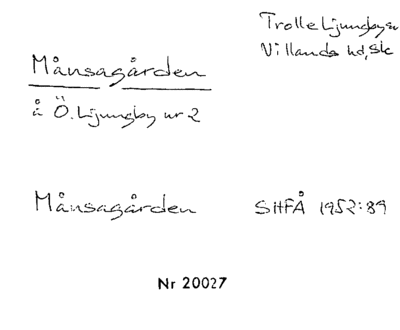 Trolle Ljungby sn
Villands hd, Sk
Månsagården
å Ö. Ljungby nr 2
Månsagården SHFÅ 1952:89
Nr 20027